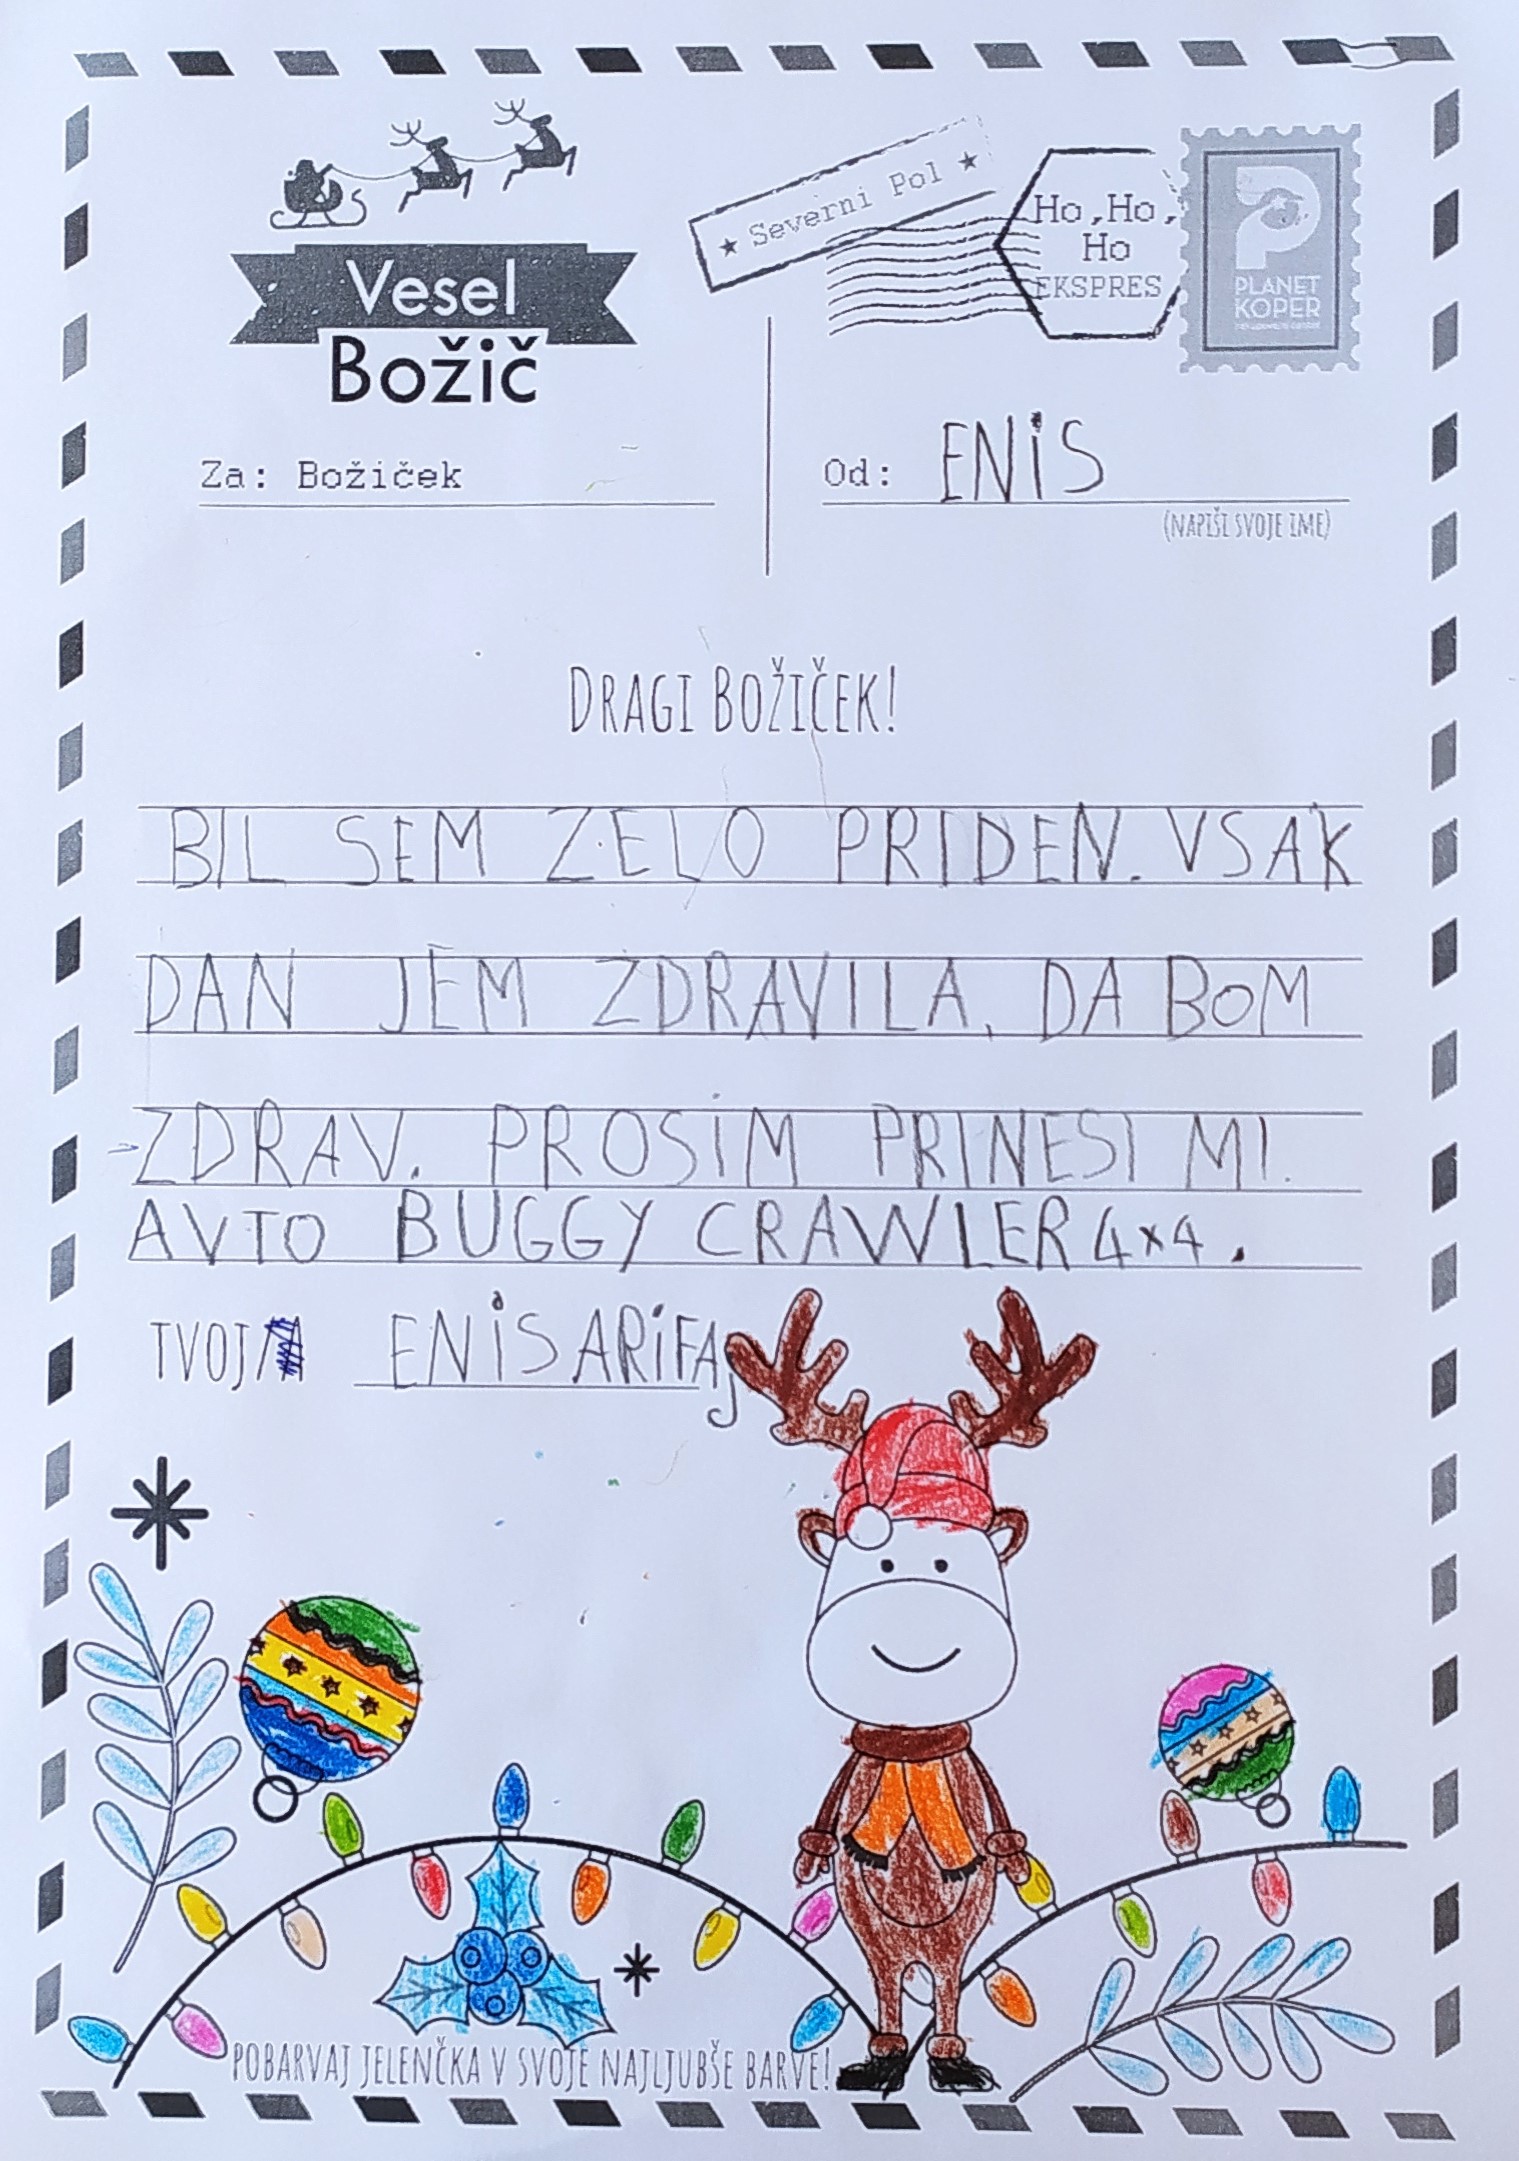 Vesel
Božič
★ Severni Pol ★
Ho, Ho,
Ho
EKSPRES
PLANET
KOPER
Za: Božiček
Od: ENiS
(NAPIŠI SVOJE IME)
DRAGI BOŽIČEK!
BIL SEM ZELO PRIDEN. VSAK
DAN JEM ZDRAVILA, DA BOM
ZDRAV. PROSiM PRINESI MI.
AVTO BUGGY CRAWLER 4x4.
TVOJ/A ENiS ARiFAj
POBARVAJ JELENČKA V SVOJE NAJLJUBŠE BARVE!